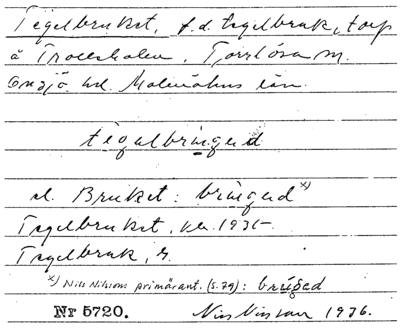 Tegelbruket, f.d. tegelbruk, torp
å Trolleholm, Torrlösa sn.
Onsjö hd. Malmöhus län.
tegalbrünged
el. Bruket: brünged x)
Tegelbruket, ek. 1935
Tegelbruk, g.
x) Nils Nilssons primärant. (s. 79): brúged
Nr 5720. Nils Nilsson 1936.